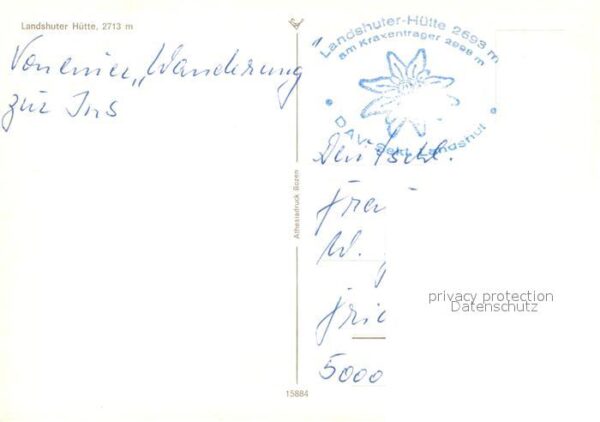 Landshuter Hütte, 2713 m
Von einer „Wanderung"
zur Ins
Landshuter-Hütte 2693 m
am Kraxentrager 2998 m
DAV. Sekt. Landshut
Athesiadruck Bozen
Deutsche.
W.
5000
privacy protection
Datenschutz
15884